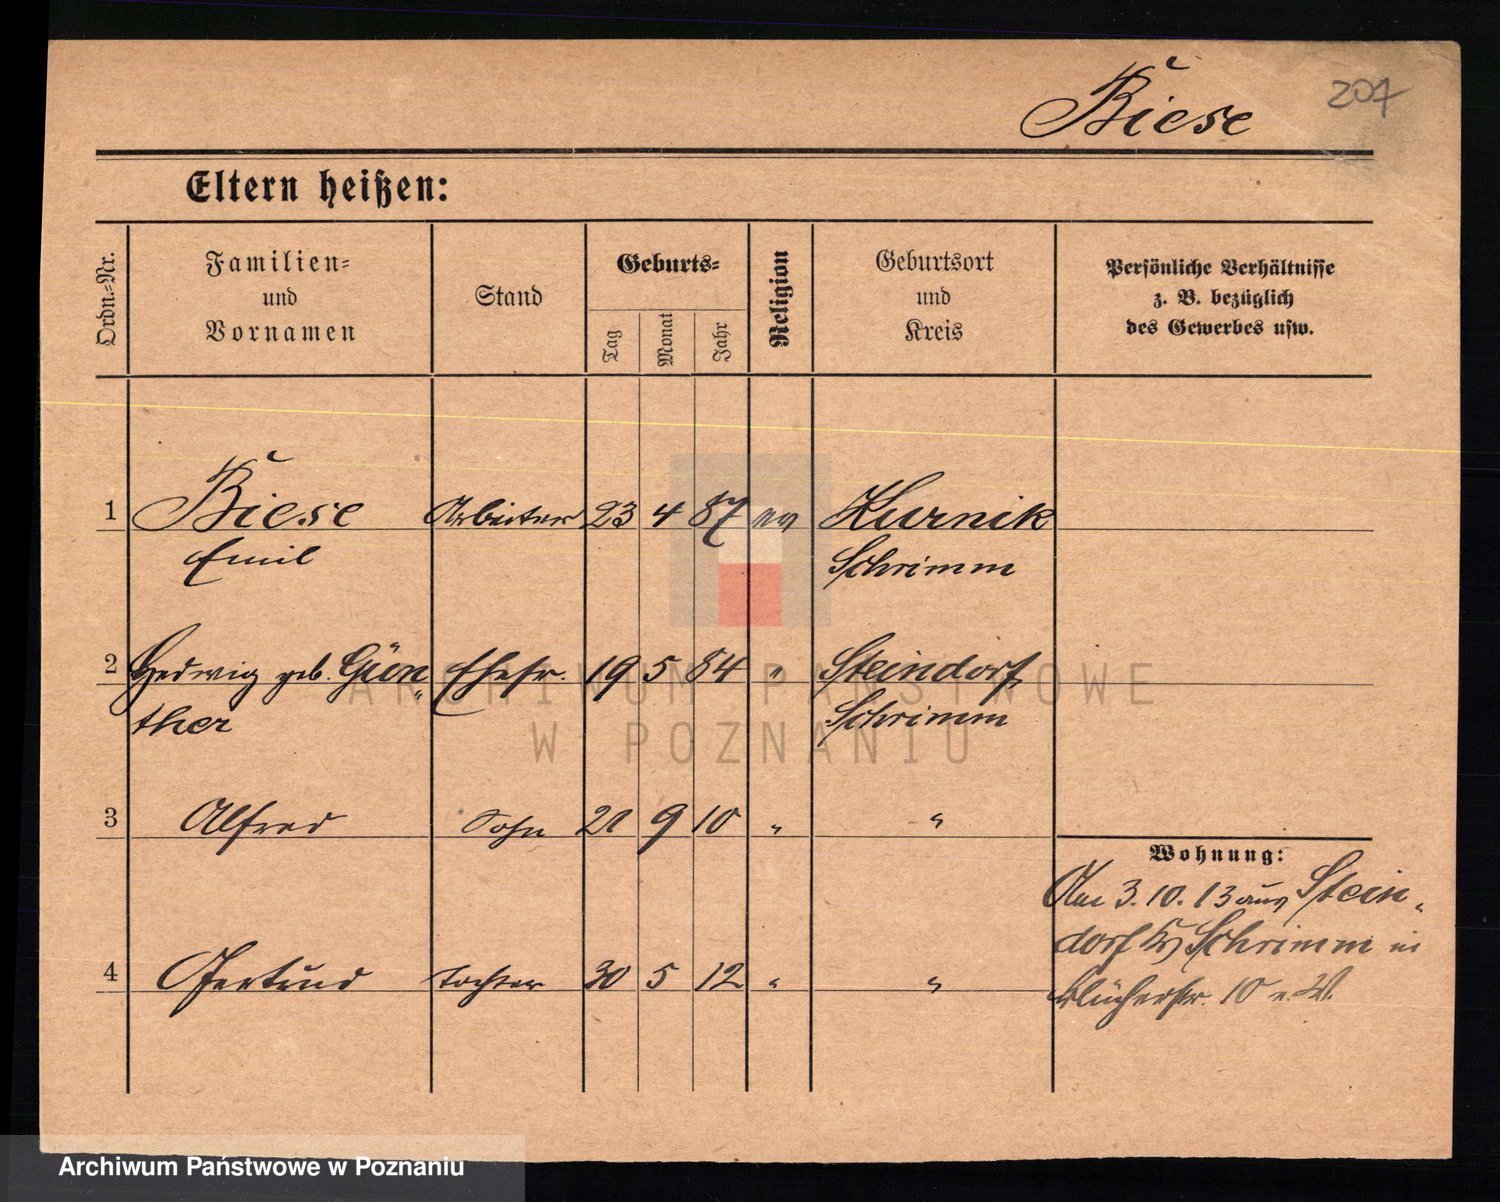 Biese
207
Eltern heißen:
Ordn.-Nr.
Familien-
und
Vornamen
Stand
Geburts-
Tag
Monat
Jahr
Religion
Geburtsort
und
Kreis
Persönliche Verhältnisse
z. B. bezüglich
des Gewerbes usw.
1 Biese Arbeiter 23 4 87 ev Kurnik
Emil Schrimm
2 Hedwig geb. Gün- Ehefr. 19 5 84 " Steindorf
ther Schrimm
3 Alfred Sohn 20 9 10 " "
Wohnung:
Am 3.10.13 aus Stein-
dorf Kr Schrimm in
4 Gertrud Tochter 30 5 12 " "
Blücherstr. 10 e. W.
ARCHIWUM PAŃSTWOWE
W POZNANIU
Archiwum Państwowe w Poznaniu